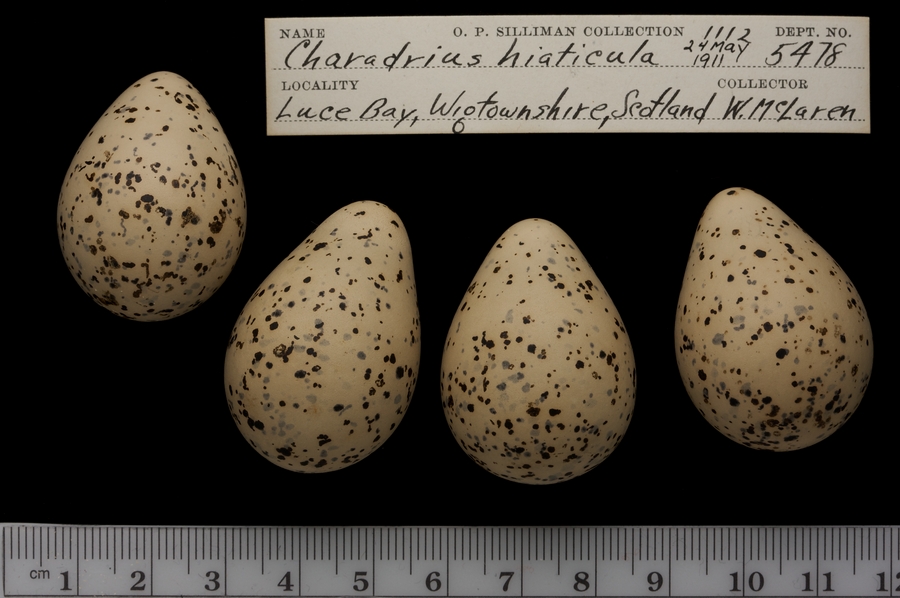 NAME O. P. SILLIMAN COLLECTION 1112 DEPT. NO.
Charadrius hiaticula 24 May 1911 5478
LOCALITY COLLECTOR
Luce Bay, Wigtownshire, Scotland W. McLaren
cm 1 2 3 4 5 6 7 8 9 10 11 12